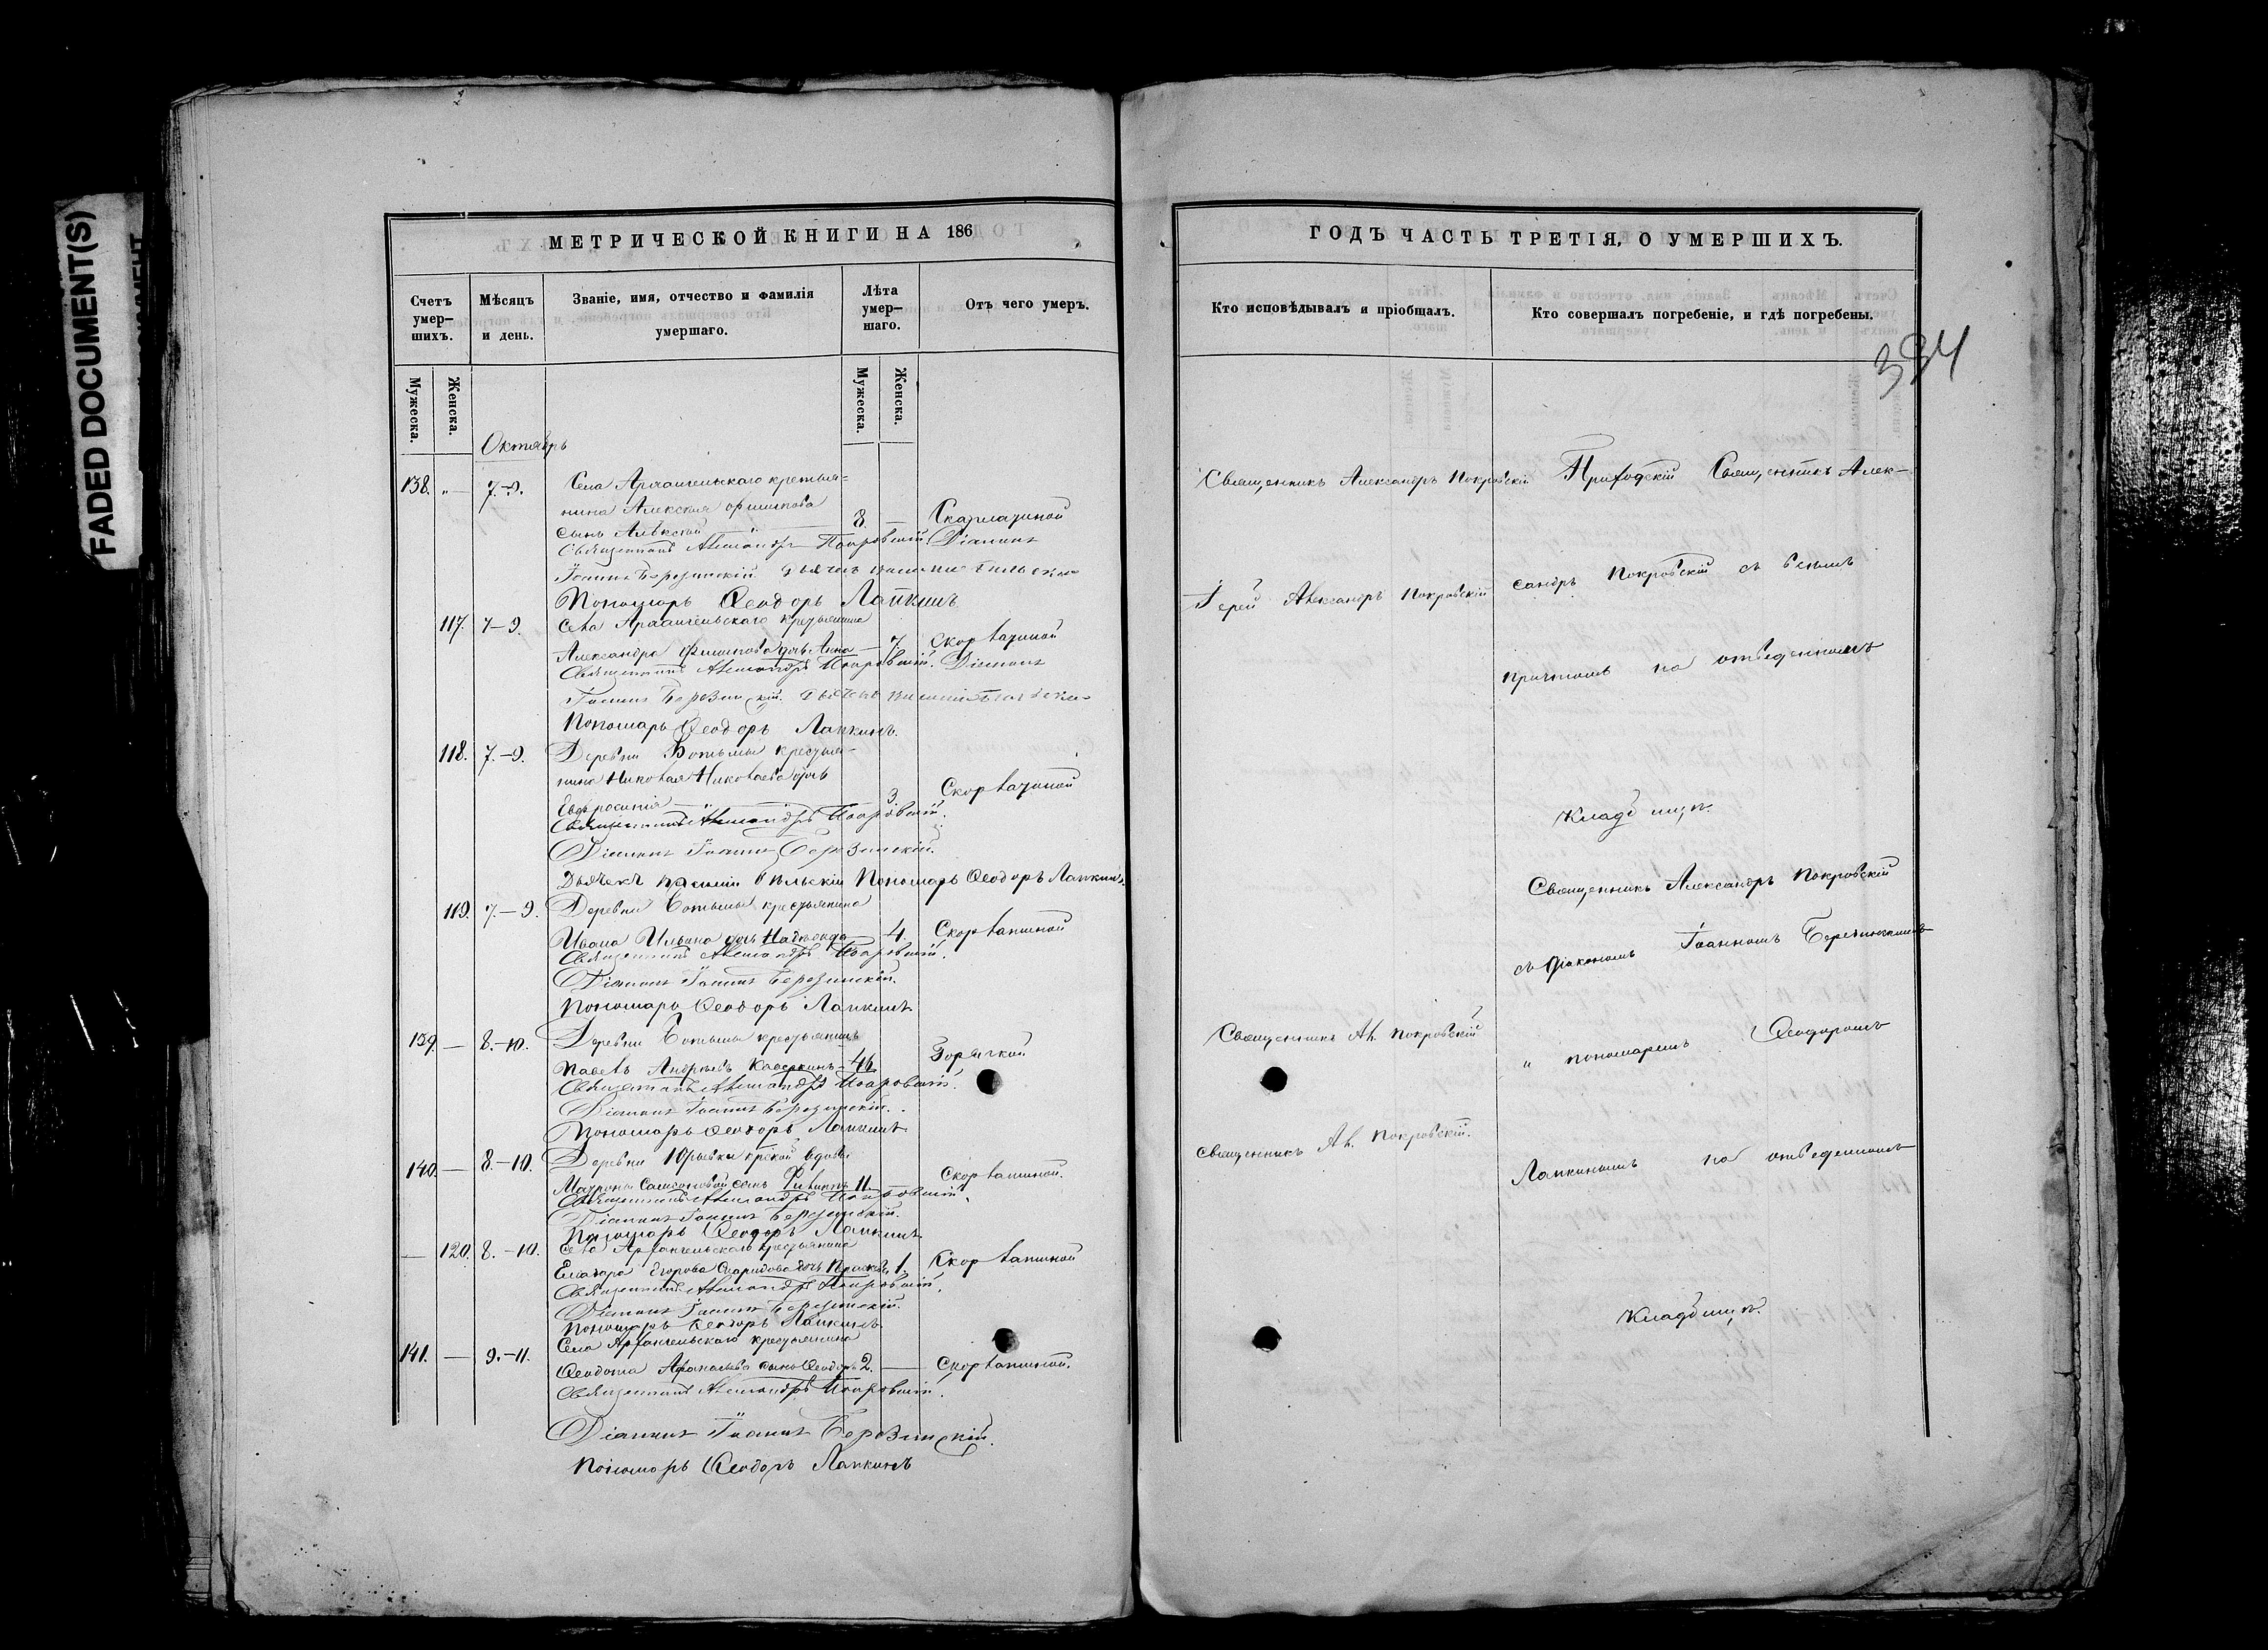 FADED DOCUMENT(S)
МЕТРИЧЕСКОЙ КНИГИ НА 186
Счетъ умер–шихъ.
Мѣсяцъ и день.
Званіе, имя, отчество и фамилія умершаго.
Лѣта умер–шаго.
Отъ чего умеръ.
Мужеска.
Женска.
Мужеска.
Женска.
Октябрь
138. „ — 7.–9. Села Архангельскаго крестья=
нина Алексея Филипова
сынъ Алексей 8. — Скарлатиной
Священникъ Александръ Покровскій. Діаконъ
Іоаннъ Березинскій. Дьячекъ
Пономарь Ѳеодоръ Лапкинъ.
117. 7–9. Села Архангельскаго крестьянина
Александра Филипова дочь Анна — 7. Скорлатиной
Священникъ Александръ Покровскій. Діаконъ
Іоаннъ Березинскій. Дьячекъ
Пономарь Ѳеодоръ Лапкинъ.
118. 7.–9. Деревни Ботьмы крестья–
нина Николая Николаева дочь
Евфросинія — 3 Скорлатиной
Священникъ Александръ Покровскій.
Діаконъ Іоаннъ Березинскій.
Дьячекъ Пономарь Ѳеодоръ Лапкинъ.
119. 7.–9. Деревни Ботьмы крестьянина
Ивана Ильина дочь Надежда 4. Скорлатиной
Священникъ Александръ Покровскій.
Діаконъ Іоаннъ Березинскій.
Пономарь Ѳеодоръ Лапкинъ
139. — 8.–10. Деревни Ботьмы крестьянинъ
Павелъ Андреевъ Горячкой
Священникъ Александръ Покровскій.
Діаконъ Іоаннъ Березинскій.
Пономарь Ѳеодоръ Лапкинъ
140. — 8.–10. Деревни Юрьевки вдовы
Матроны Самсоновой сынъ Филиппъ 11 — Скорлатиной.
Священникъ Александръ Покровскій.
Діаконъ Іоаннъ Березинскій.
Пономарь Ѳеодоръ Лапкинъ
— 120. 8.–10. Села Архангельскаго крестьянина
Елеазара Егорова дочь 1. Скорлатиной
Священникъ Александръ Покровскій.
Діаконъ Іоаннъ Березинскій.
Пономарь Ѳеодоръ Лапкинъ.
141. — 9.–11. Села Архангельскаго крестьянина
Ѳеодота Афанасьева сынъ Ѳеодоръ 2. — Скорлатиной.
Священникъ Александръ Покровскій.
Діаконъ Іоаннъ Березинскій.
Пономарь Ѳеодоръ Лапкинъ
ГОДЪ ЧАСТЬ ТРЕТІЯ, О УМЕРШИХЪ.
Кто исповѣдывалъ и пріобщалъ.
Кто совершалъ погребеніе, и гдѣ погребены.
394
Священникъ Александръ Покровскій
Іерей Александръ Покровскій
Священникъ Ал. Покровскій
Священникъ Ал. Покровскій.
Приходскій Священникъ Алек–
сандръ Покровскій съ
причтомъ на отведенномъ
Кладбищѣ.
Священникъ Александръ Покровскій
съ діакономъ Іоанномъ Березинскимъ
„ пономаремъ Ѳеодоромъ
Лапкинымъ на отведенномъ
Кладбищѣ.